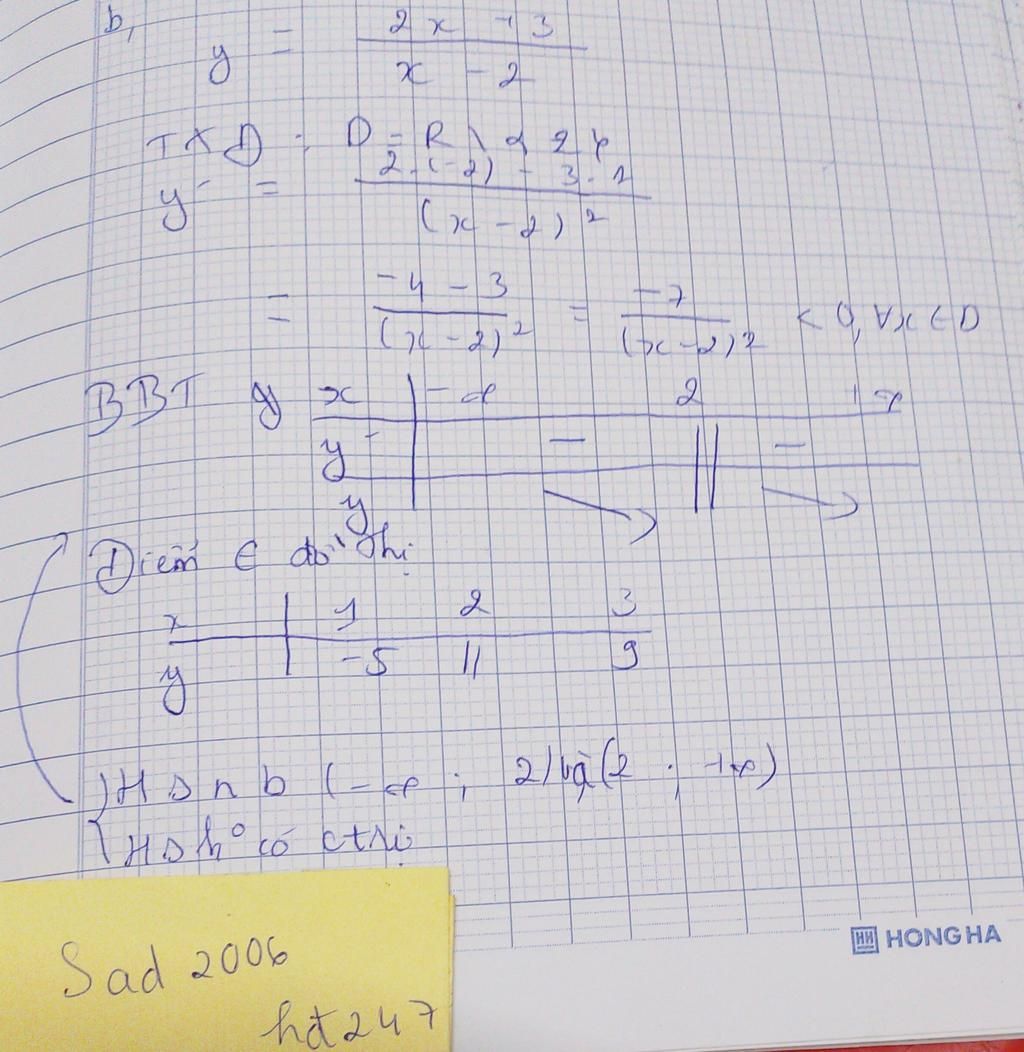 b,
y = 2x + 3 / x - 2
TXD : D = R \ { 2 }
y' = 2.(-2) - 3.1 / (x - 2)²
= -4 - 3 / (x - 2)² = -7 / (x - 2)² < 0, ∀x ∈ D
BBT x -∞ 2 +∞
y' - || -
y
Điểm ∈ đồ thị
x 1 2 3
y -5 11 9
HS nb (-∞ ; 2) và (2 ; +∞)
HS k° có ctrị
HONG HA
Sad 2006
hđ247